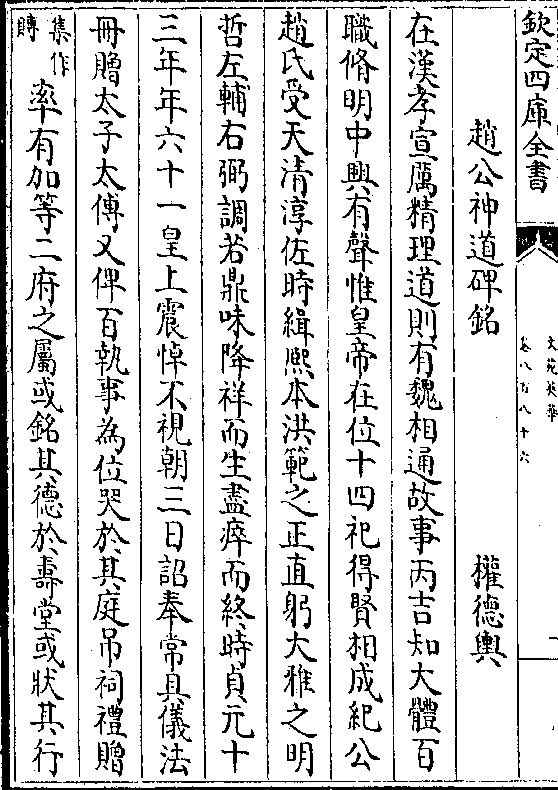 欽定四庫全書
文苑英華
卷八百八十六
一
趙公神道碑銘　權德輿
在漢孝宣厲精理道則有魏相通故事丙吉知大體百
職脩明中興有聲惟皇帝在位十四祀得賢相成紀公
趙氏受天清淳佐時緝熈本洪範之正直躬大雅之明
哲左輔右弼調若鼎味降祥而生盡瘁而終時貞元十
三年年六十一皇上震悼不視朝三日詔奉常具儀法
冊贈太子太傅又俾百執事為位哭於其庭吊祠禮贈
集作賻
率有加等二府之屬或銘其德於壽堂或狀其行